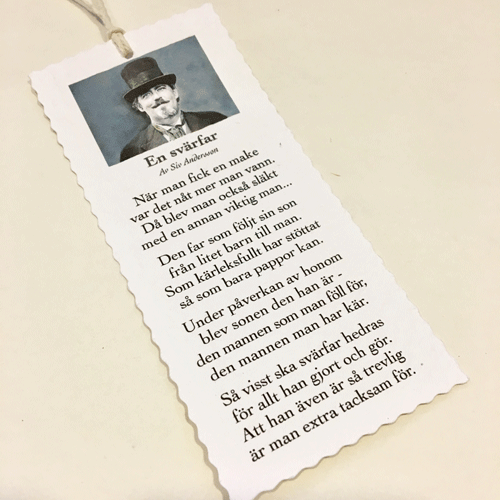 En svärfar
Av Siv Andersson
När man fick en make
var det nåt mer man vann.
Då blev man också släkt
med en annan viktig man...
Den far som följt sin son
från litet barn till man.
Som kärleksfullt har stöttat
så som bara pappor kan.
Under påverkan av honom
blev sonen den han är -
den mannen som man föll för,
den mannen man har kär.
Så visst ska svärfar hedras
för allt han gjort och gör.
Att han även är så trevlig
är man extra tacksam för.